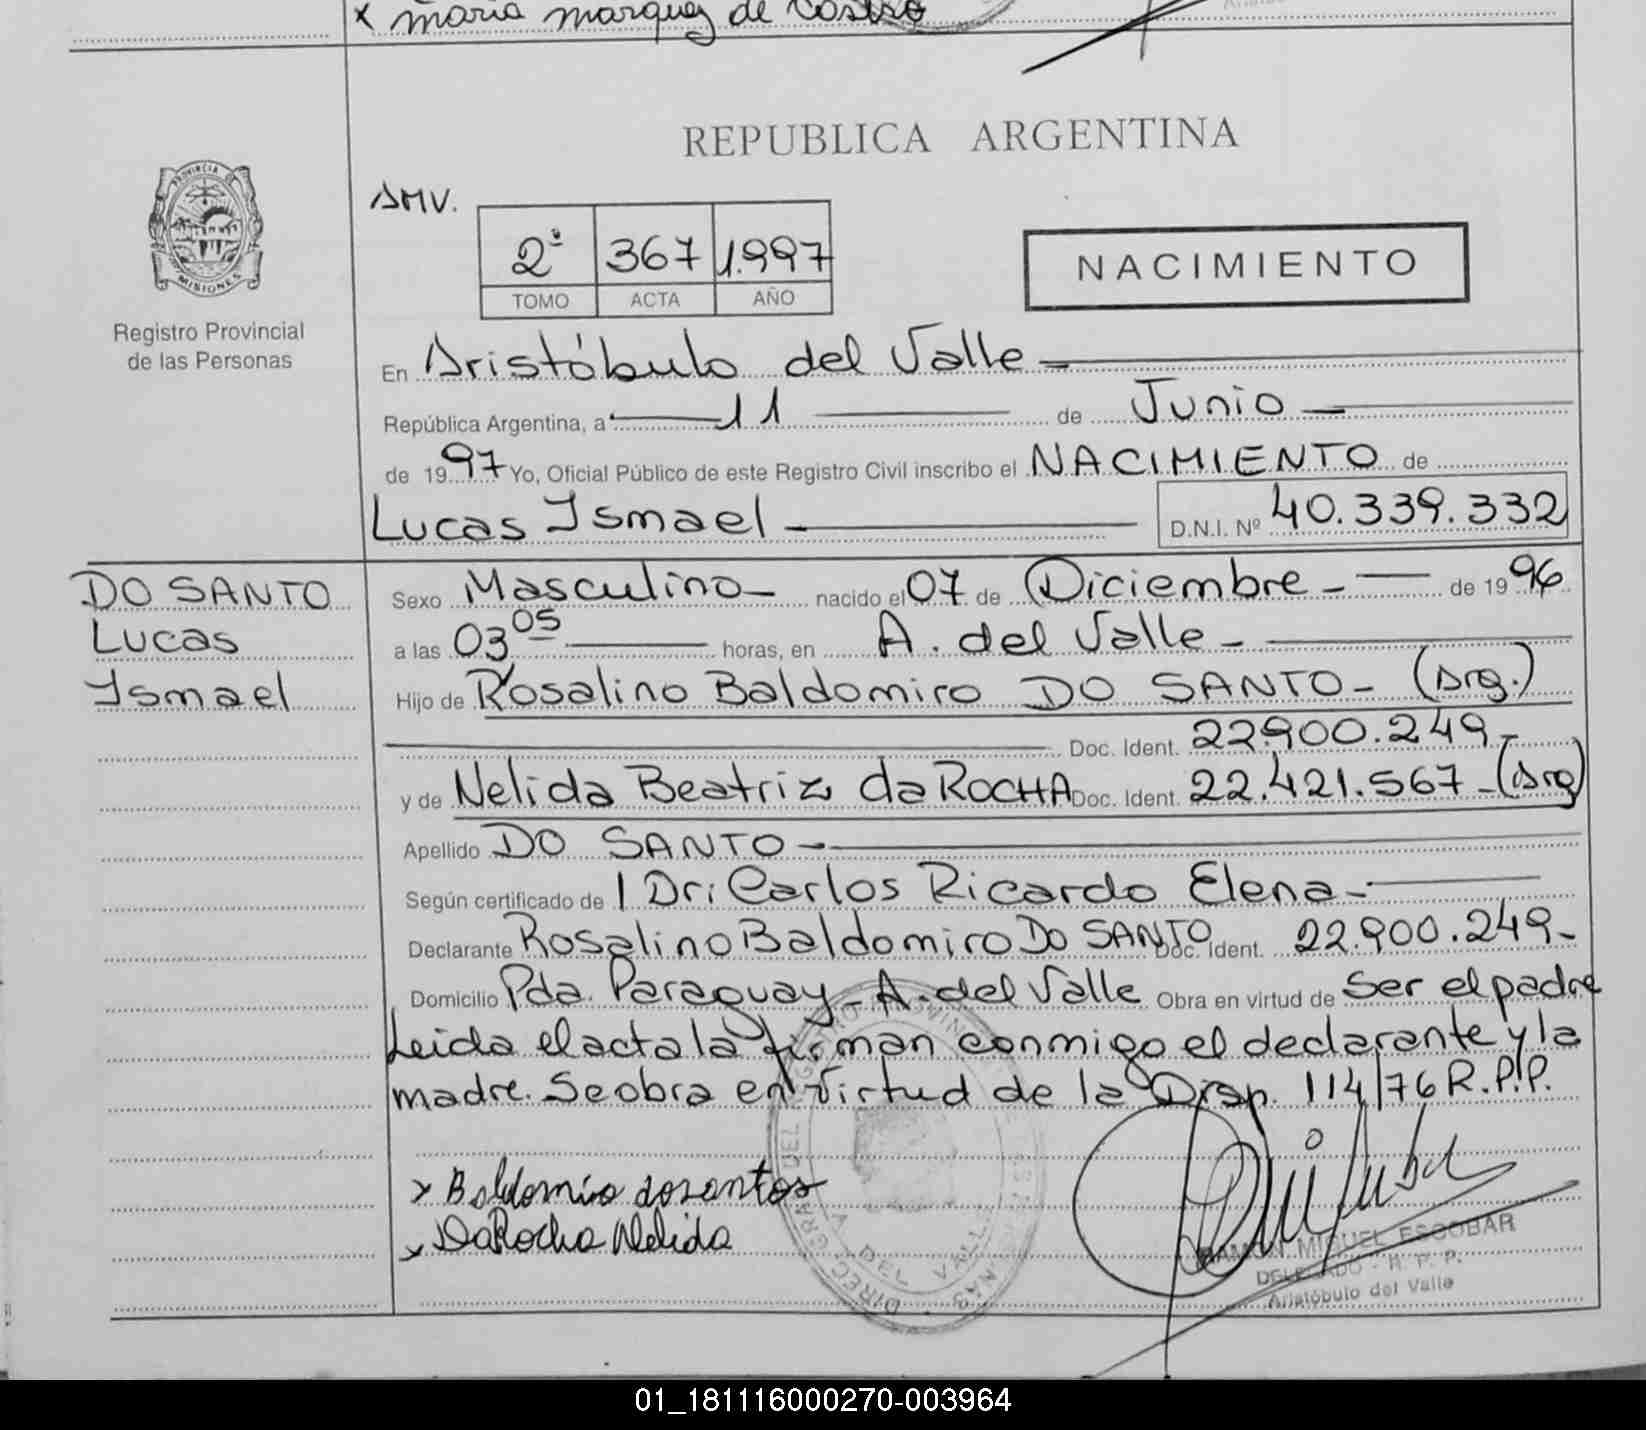 x maria marquez de Costro
REPUBLICA ARGENTINA
PROVINCIA DE
MISIONES
Registro Provincial
de las Personas
AMV.
2º 367 1.997
TOMO ACTA AÑO
NACIMIENTO
En Aristóbulo del Valle
República Argentina, a 11 de Junio
de 1997 Yo, Oficial Público de este Registro Civil inscribo el NACIMIENTO de
Lucas Ismael D.N.I. Nº 40.339.332
DO SANTO
Lucas
Ismael
Sexo Masculino nacido el 07 de Diciembre de 1996
a las 03 05 horas, en A. del Valle
Hijo de Rosalino Baldomiro DO SANTO (Arg.)
Doc. Ident. 22.900.249
y de Nelida Beatriz da ROCHA Doc. Ident. 22.421.567 (Arg)
Apellido DO SANTO
Según certificado de 1 Dr: Carlos Ricardo Elena
Declarante Rosalino Baldomiro DO SANTO Doc. Ident. 22.900.249
Domicilio Pda. Paraguay - A. del Valle Obra en virtud de ser el padre
Leida el acta la firman conmigo el declarante y la
madre. Se obra en virtud de la Disp. 114/76 R.P.P.
x Baldomiro dosantos
x DaRocha Nelida
RAMON MIGUEL ESCOBAR
DELEGADO - R. P. P.
Aristóbulo del Valle
01_181116000270-003964